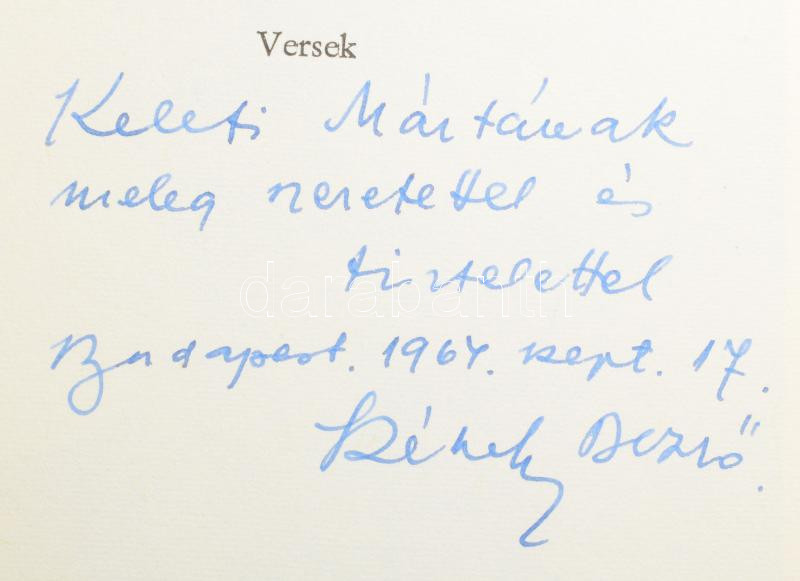 Versek
Keleti Mártának
meleg szeretettel és
tisztelettel
darabanth
Budapest. 1964. szept. 17.
Dezső.